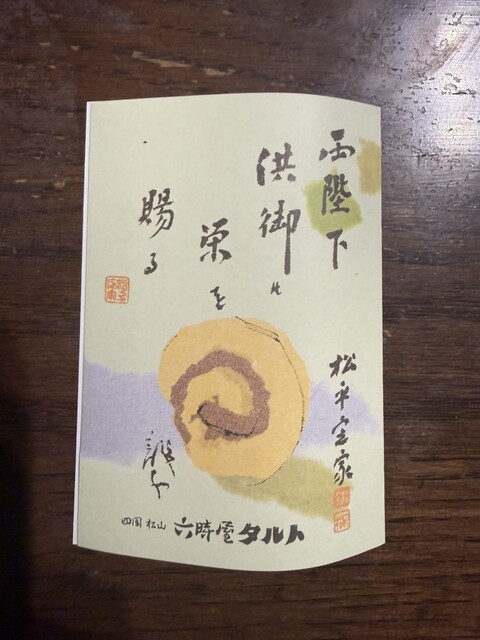 両陛下
供御に
栄を
賜る
松平定家
四国 松山 六時屋タルト